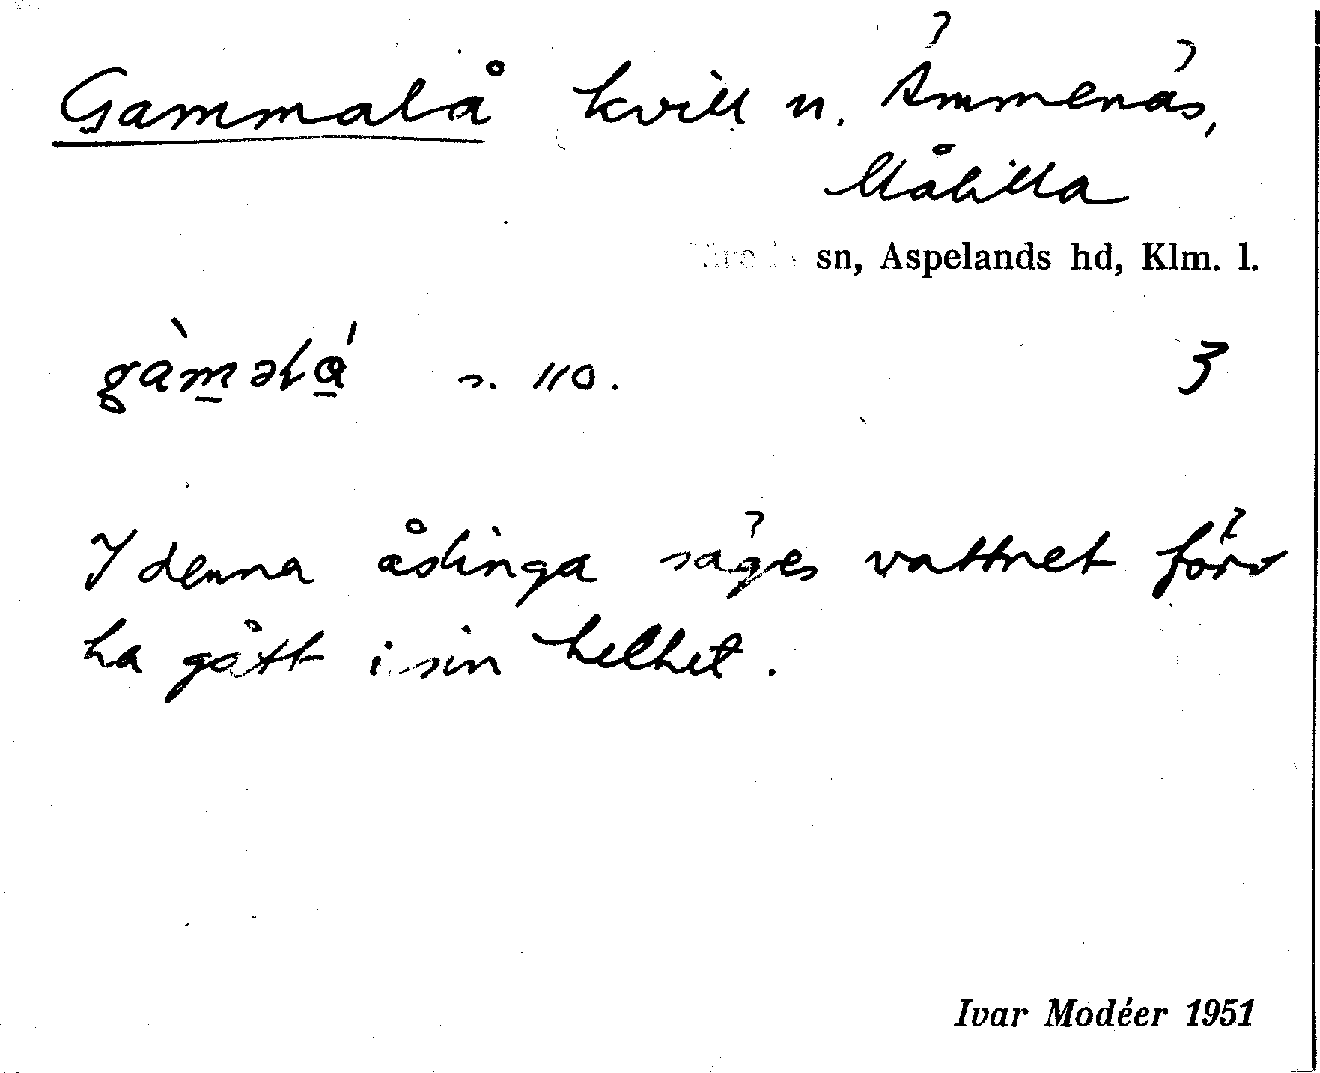 Gammalå kvill n. Ämmenäs,
Målilla
sn, Aspelands hd, Klm. l.
gàmǝlá n. 110. 3
I denna åslinga säges vattnet förr
ha gått i sin helhet.
Ivar Modéer 1951